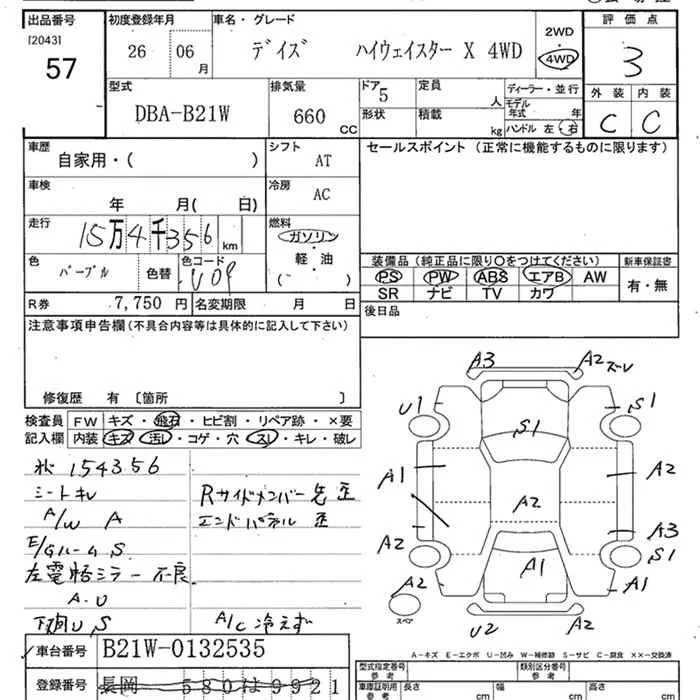 出品番号 初度登録年月 車名・グレード 評価点
[2043] 57
26 06 月
デイズ ハイウェイスター X 4WD
2WD
4WD
3
型式 排気量 ドア 定員 ディーラー・並行 外装 内装
DBA-B21W 660 CC 5 人 モデル年式 年
形状 積載 kg ハンドル 左・右 C C
車歴 シフト セールスポイント (正常に機能するものに限ります)
自家用・( ) AT
車検 冷房
年 月( 日) AC
走行 燃料
15万4千356 km ガソリン
軽・油
( )
色 色コード 装備品 (純正品に限り○をつけてください) 新車保証書
パープル 色替 V09
PS PW ABS エアB AW 有・無
SR ナビ TV カワ
R券 7,750 円 名変期限 月 日 後日品
注意事項申告欄 (不具合内容等は具体的に記入して下さい)
修復歴 有 〔箇所 〕
検査員 FW キズ・飛石・ヒビ割・リペア跡・×要
記入欄 内装 キズ・汚レ・コゲ・穴・スレ・キレ・破レ
154356
シートキレ Rサイドメンバー先歪
A/W A エンドパネル 歪
E/Gルーム S
左電格ミラー不良
A.U
下廻U,S A/C 冷えず
A3 A2 ズレ
U1 S1
S1
A1 A2
A2
A2 A3
S1
A1
A2 A1
スペア
U2
A-キズ E-エクボ U-凹み W-補修跡 S-サビ C-腐食 XX-交換済
車台番号 B21W-0132535
登録番号 長岡 580 は 9921
型式指定番号 参考 類別区分番号 参考
車庫証明用 参考 長さ cm 幅 cm 高さ cm